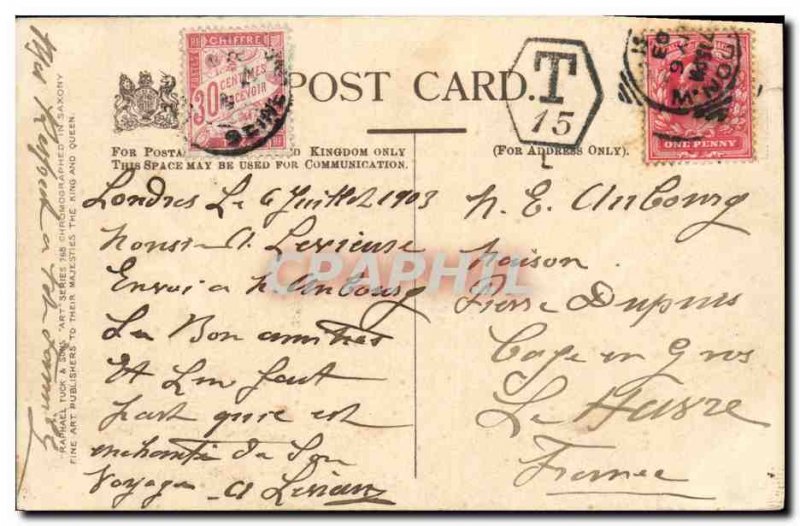 CHIFFRE
30
CENTIMES
A PERCEVOIR
POST CARD.
T
15
L
ONE PENNY
FOR POSTA D KINGDOM ONLY
THIS SPACE MAY BE USED FOR COMMUNICATION.
(FOR ADDRESS ONLY).
RAPHAEL TUCK & SONS "ART" SERIES 768 CHROMOGRAPHED IN SAXONY
FINE ART PUBLISHERS TO THEIR MAJESTIES THE KING AND QUEEN.
Londres Le 6 Juillet 1903
Monsieur A. Levieuse
Envoi a M Aubourg
Les Bon amities
Et Lui fait
part qu'il est
enchanté de Son
Voyage A Levieux
M. E. Aubourg
Maison
Pierre Dupuis
Cage en Gros
Le Havre
France
CPAPHIL